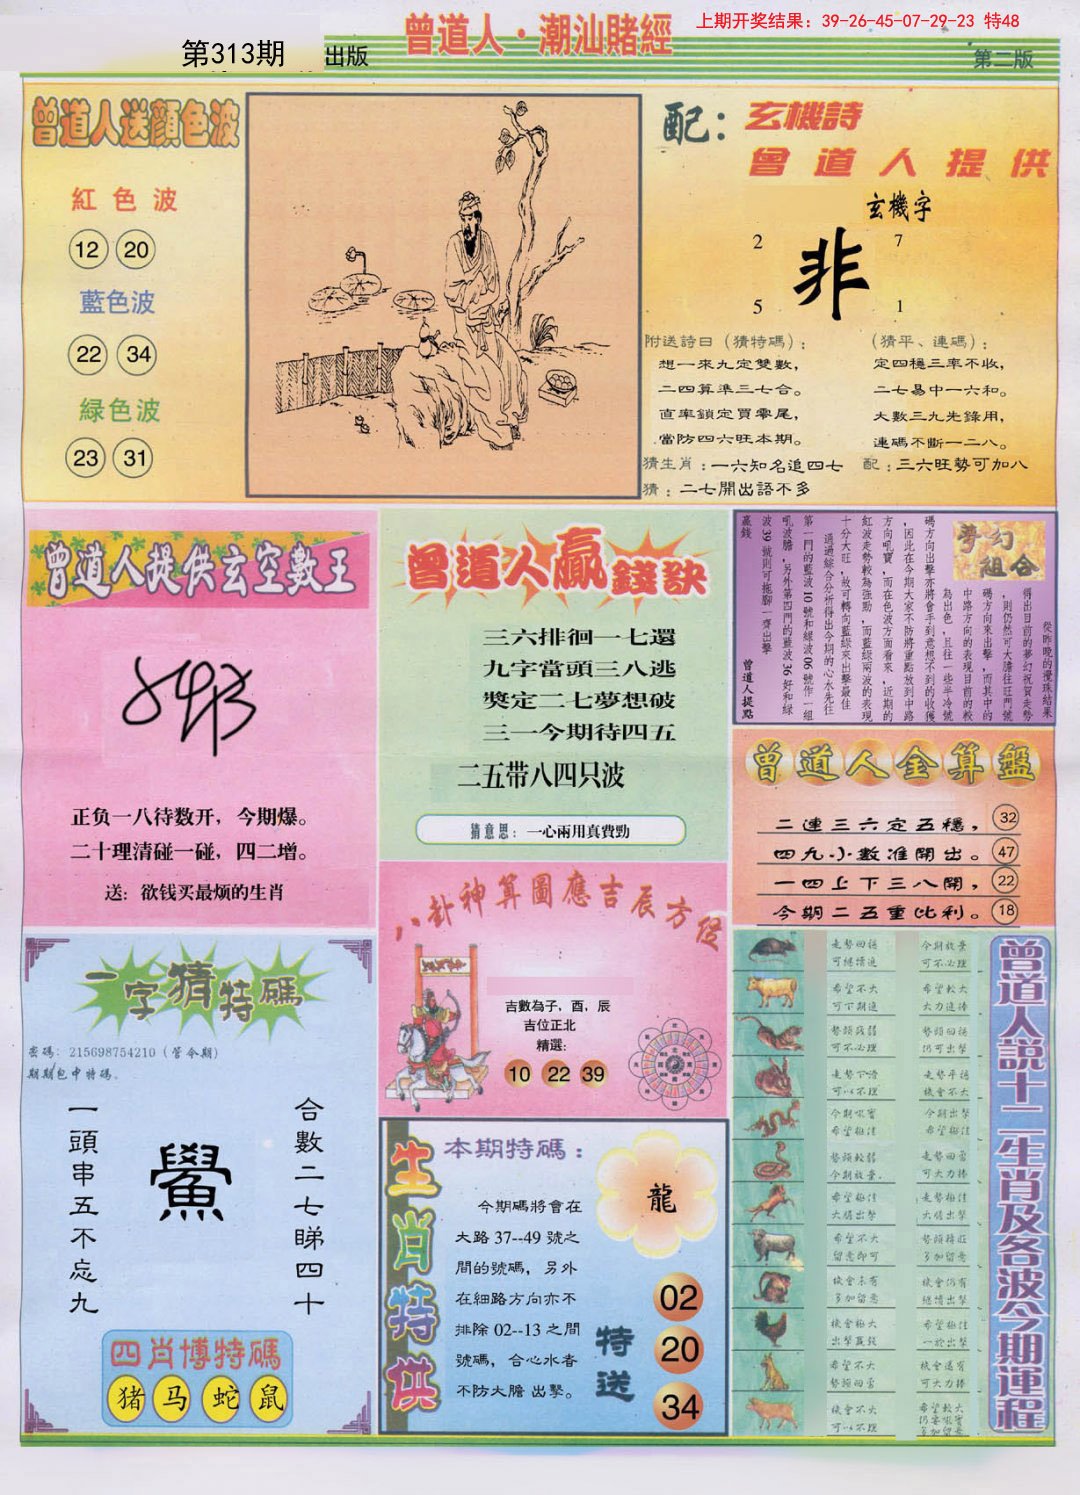 上期开奖结果：39-26-45-07-29-23 特48
曾道人·潮汕賭經
第313期
出版
第二版
曾道人送顏色波
紅色波
12 20
藍色波
22 34
緑色波
23 31
配：玄機詩
曾道人提供
玄機字
2 7
非
5 1
附送詩曰（猜特碼）；
想一來九定雙數，
二四算準三七合。
直率鎖定買零尾，
當防四六旺本期。
（猜平、連碼）；
定四穩三率不收，
二七易中一六和。
大數三九先錄用，
連碼不斷一二八。
猜生肖：一六知名追四七
配：三六旺勢可加八
猜：二七開出語不多
曾道人提供玄空數王
正负一八待数开，今期爆。
二十理清碰一碰，四二增。
送：欲钱买最烦的生肖
曾道人贏錢訣
三六排徊一七還
九字當頭三八逃
獎定二七夢想破
三一今期待四五
二五带八四只波
猜意思：一心兩用真費勁
夢幻組合
從昨晚的攪珠結果
得出目前的夢幻祝賀走勢
，則仍然可大膽往旺門號
碼方向來出擊，而其中的
中路方向的表現目前的較
為出色，且往一些半冷號
碼方向出擊亦將會手到意想不到的收獲
，因此在今期大家不防將重點放到中路
方向吼寶，而在色波方面看來，近期的
紅波走勢較為強勁，而藍綠兩波的表現
十分大旺，故可轉向藍綠來出擊最佳
通過綜合分析得出今期的心水先往
第一門的藍波10號和綠波06號作一組
吼波膽，另外第四門的藍波36好和綠
波39號則可拖腳一齊出擊
贏錢
曾道人提點
曾道人金算盤
二連三六定五穩， 32
四九小數准開出。 47
一四上下三八開， 22
今期二五重比利。 18
八卦神算圖應吉辰方位
吉數為子，酉，辰
吉位正北
精選：
10 22 39
一字猜特碼
密碼：215698754210（管今期）
期期包中特碼。
一頭串五不忘九
鱟
合數二七睇四十
四肖博特碼
猪 马 蛇 鼠
生肖特供
本期特碼：
今期碼將會在
大路37--49號之
間的號碼，另外
在細路方向亦不
排除02--13之間
號碼，合心水者
不防大膽出擊。
龍
特送
02
20
34
曾道人説十二生肖及各波今期運程
走勢回穩 今期放棄
可繼續追 可不必理
希望不大 希望較大
可下期追 大力追捧
勢頭疲弱 勢頭回穩
可不必理 仍可出擊
走勢下滑 走勢平穩
可以不理 機會不大
今期吼寶 今期出擊
希望極佳 希望極佳
勢頭較弱 走勢回勇
今期放棄 可大力捧
希望極佳 走勢極佳
大膽出擊 大膽出擊
希望不大 勢頭轉旺
留意即可 多加留意
機會未有 機會仍有
多加留意 繼續出擊
機會極大 希望極佳
出擊贏錢 一於出擊
希望不大 機會還有
勢頭回勇 可大力捧
機會不大 希望較大
可以不理 仍要吼寶
多加留意